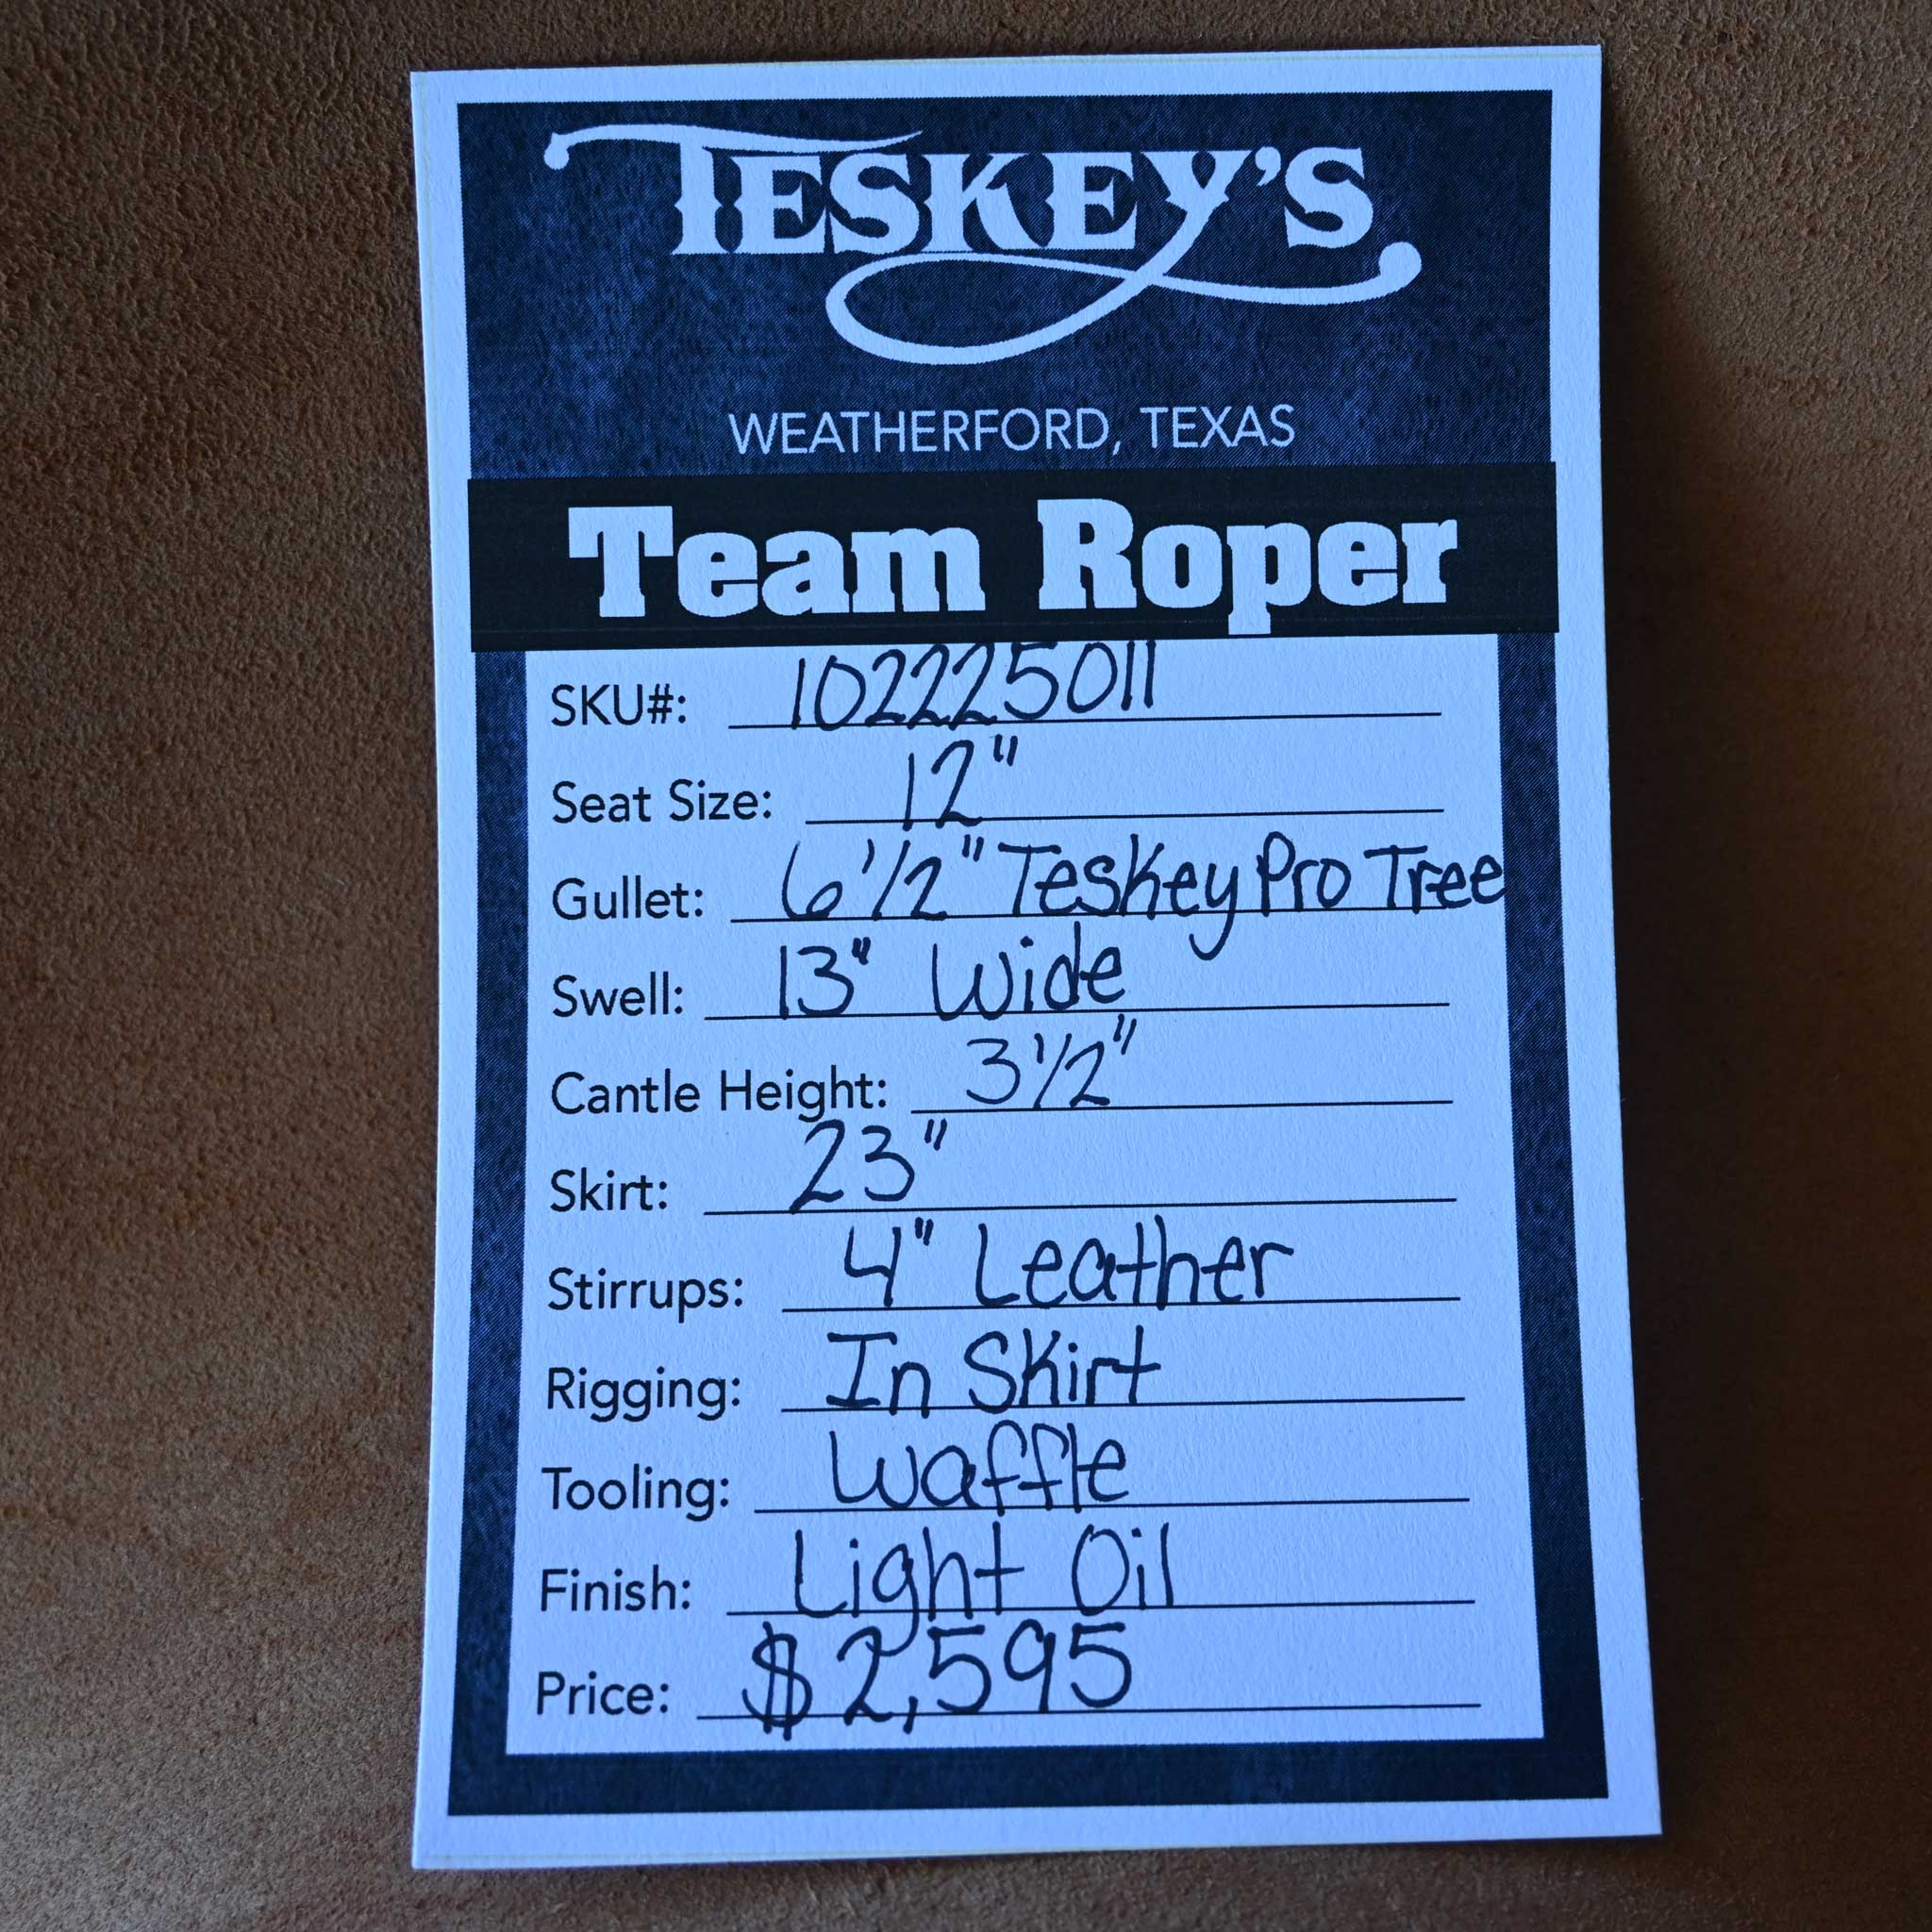 TESKEY'S
WEATHERFORD, TEXAS
Team Roper
SKU#: 102225011
Seat Size: 12"
Gullet: 6 1/2" Teskey Pro Tree
Swell: 13" Wide
Cantle Height: 3 1/2"
Skirt: 23"
Stirrups: 4" Leather
Rigging: In Skirt
Tooling: Waffle
Finish: Light Oil
Price: $2,595